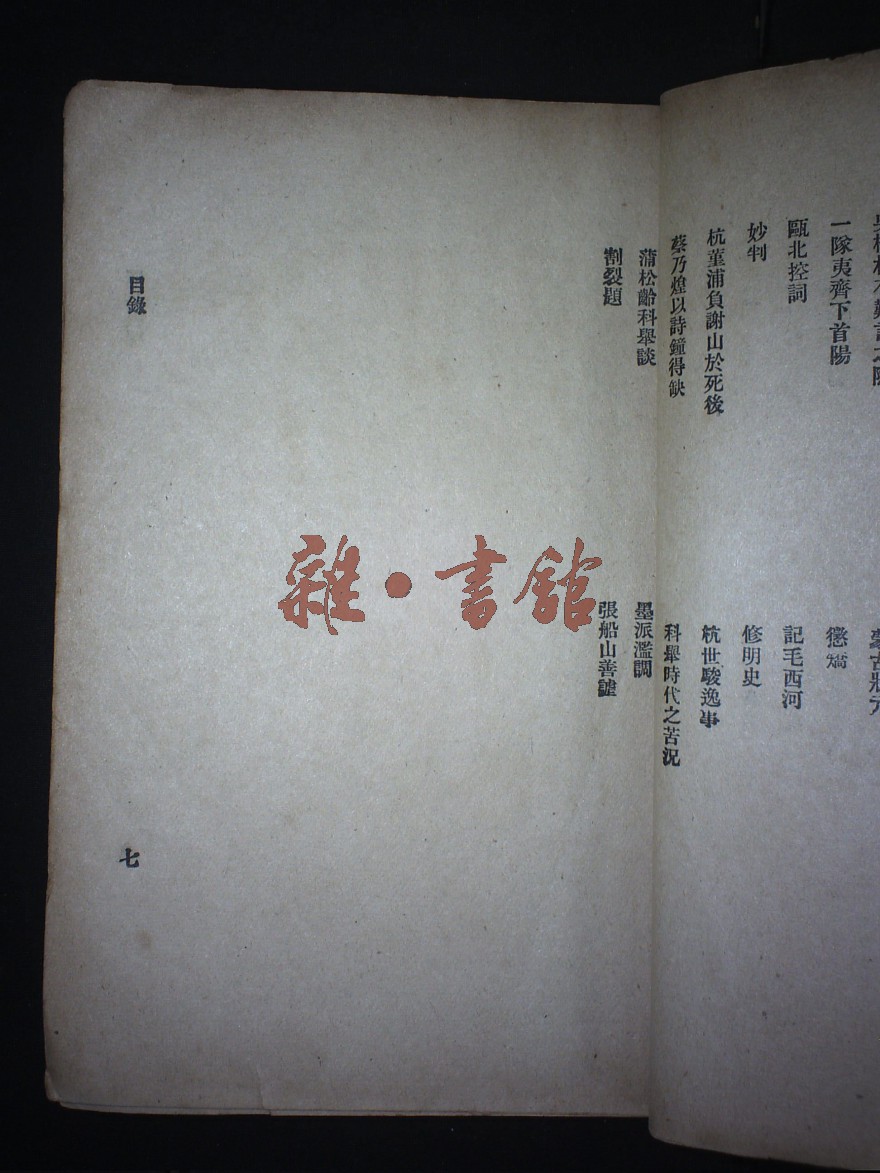 一隊夷齊下首陽
甌北控詞
妙判
杭菫浦負謝山於死後
蔡乃煌以詩鐘得缺
蒲松齡科舉談
割裂題
蒙古狀元
懲矯
記毛西河
修明史
杭世駿逸事
科舉時代之苦況
墨派濫調
張船山善謔
目錄
七
雜·書館